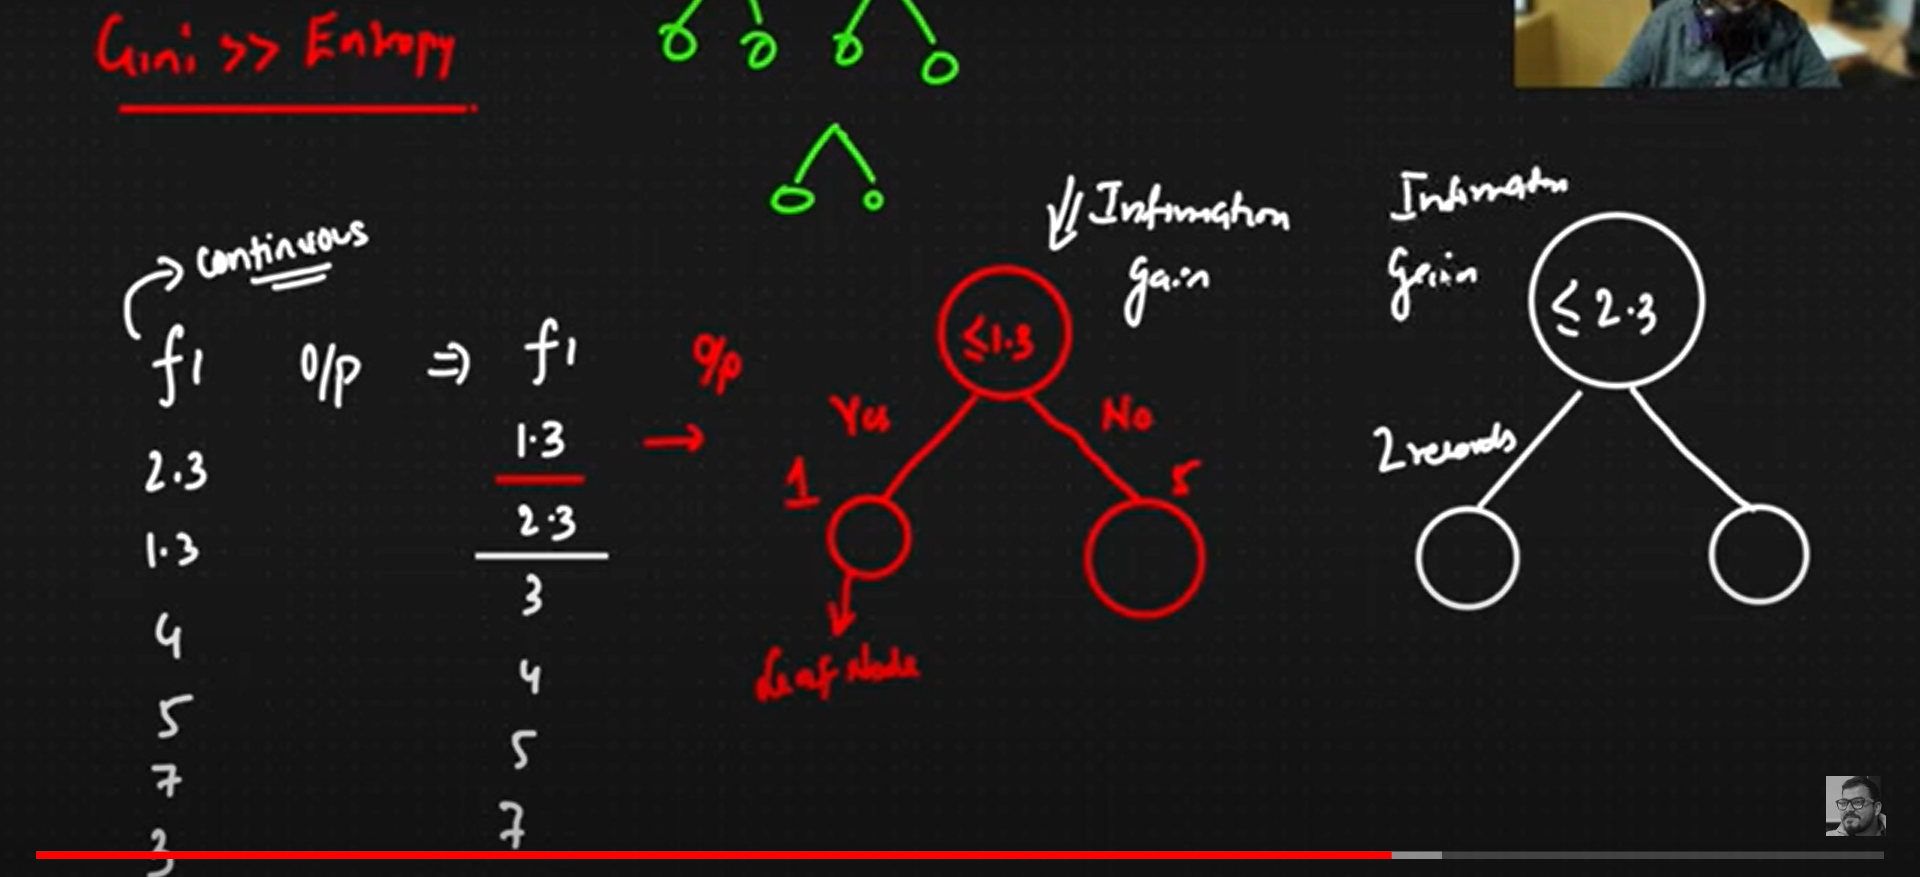 Gini >> Entropy
continuous
f1 O/p ⇒ f1 → O/p
2.3
1.3
4
5
7
3
1.3
2.3
3
4
5
7
Information
gain
≤1.3
Yes
No
1
5
Leaf Node
Information
Gain
≤ 2.3
2 records